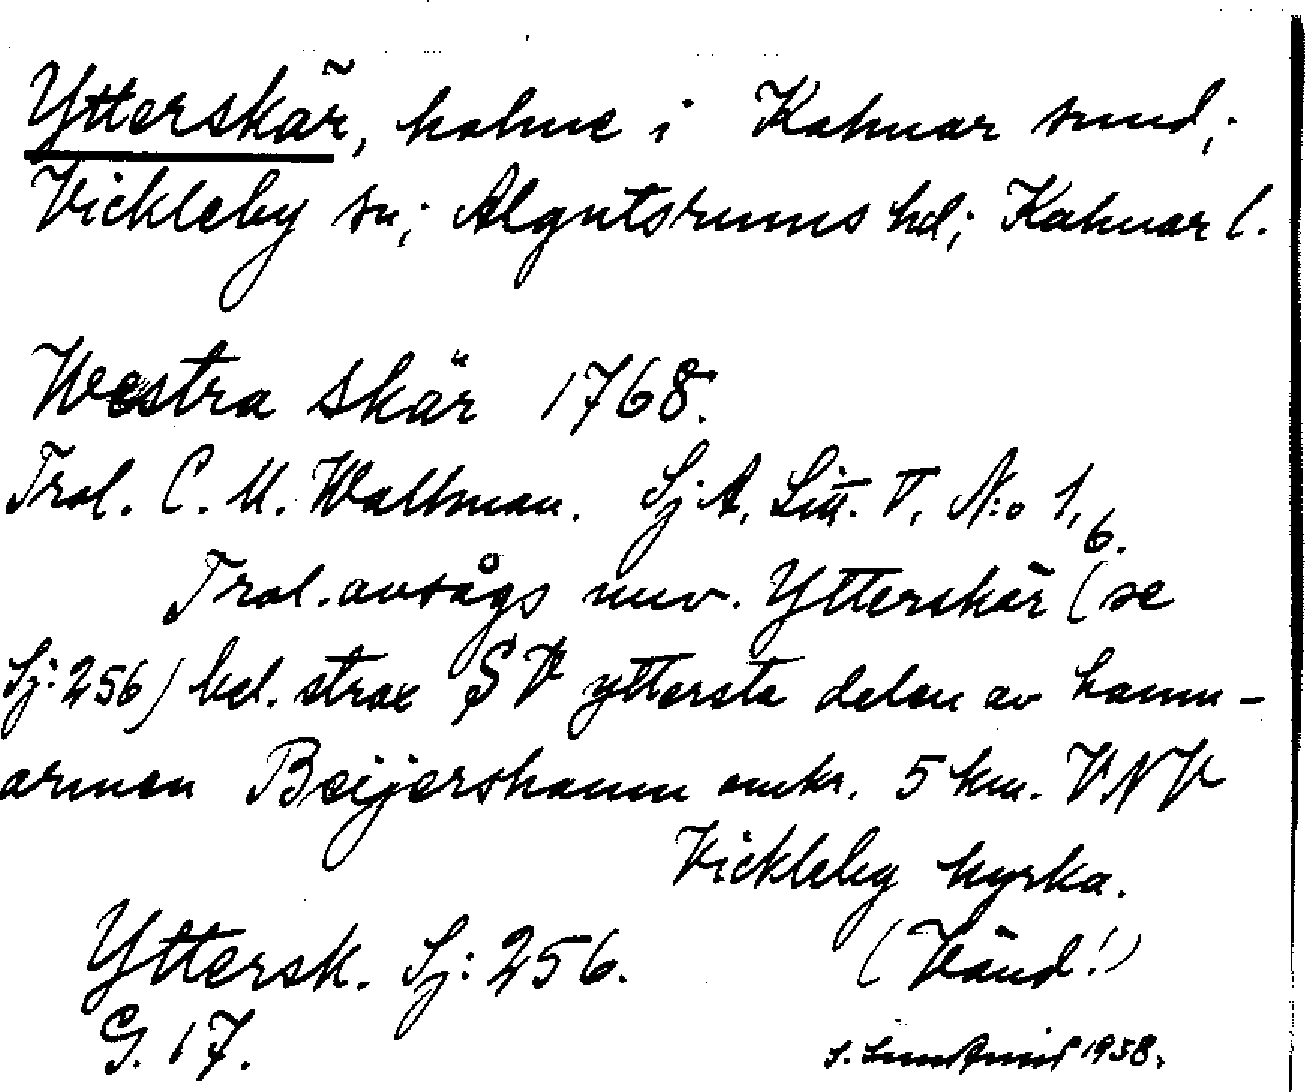 Ytterskär, holme i Kalmar sund;
Vickleby sn; Algutsrums hd; Kalmar l.
Westra skär 1768.
Trol. C. U. Wallman. Sj.A, Litt. V, N:o 1, 6.
Trol. avsågs nuv. Ytterskär (se
Sj: 256) bel. strax SV yttersta delen av hamn-
armen Beijershamn omkr. 5 km. VNV
Vickleby kyrka.
Yttersk. Sj: 256. (Vänd!)
G. 17. 1958.